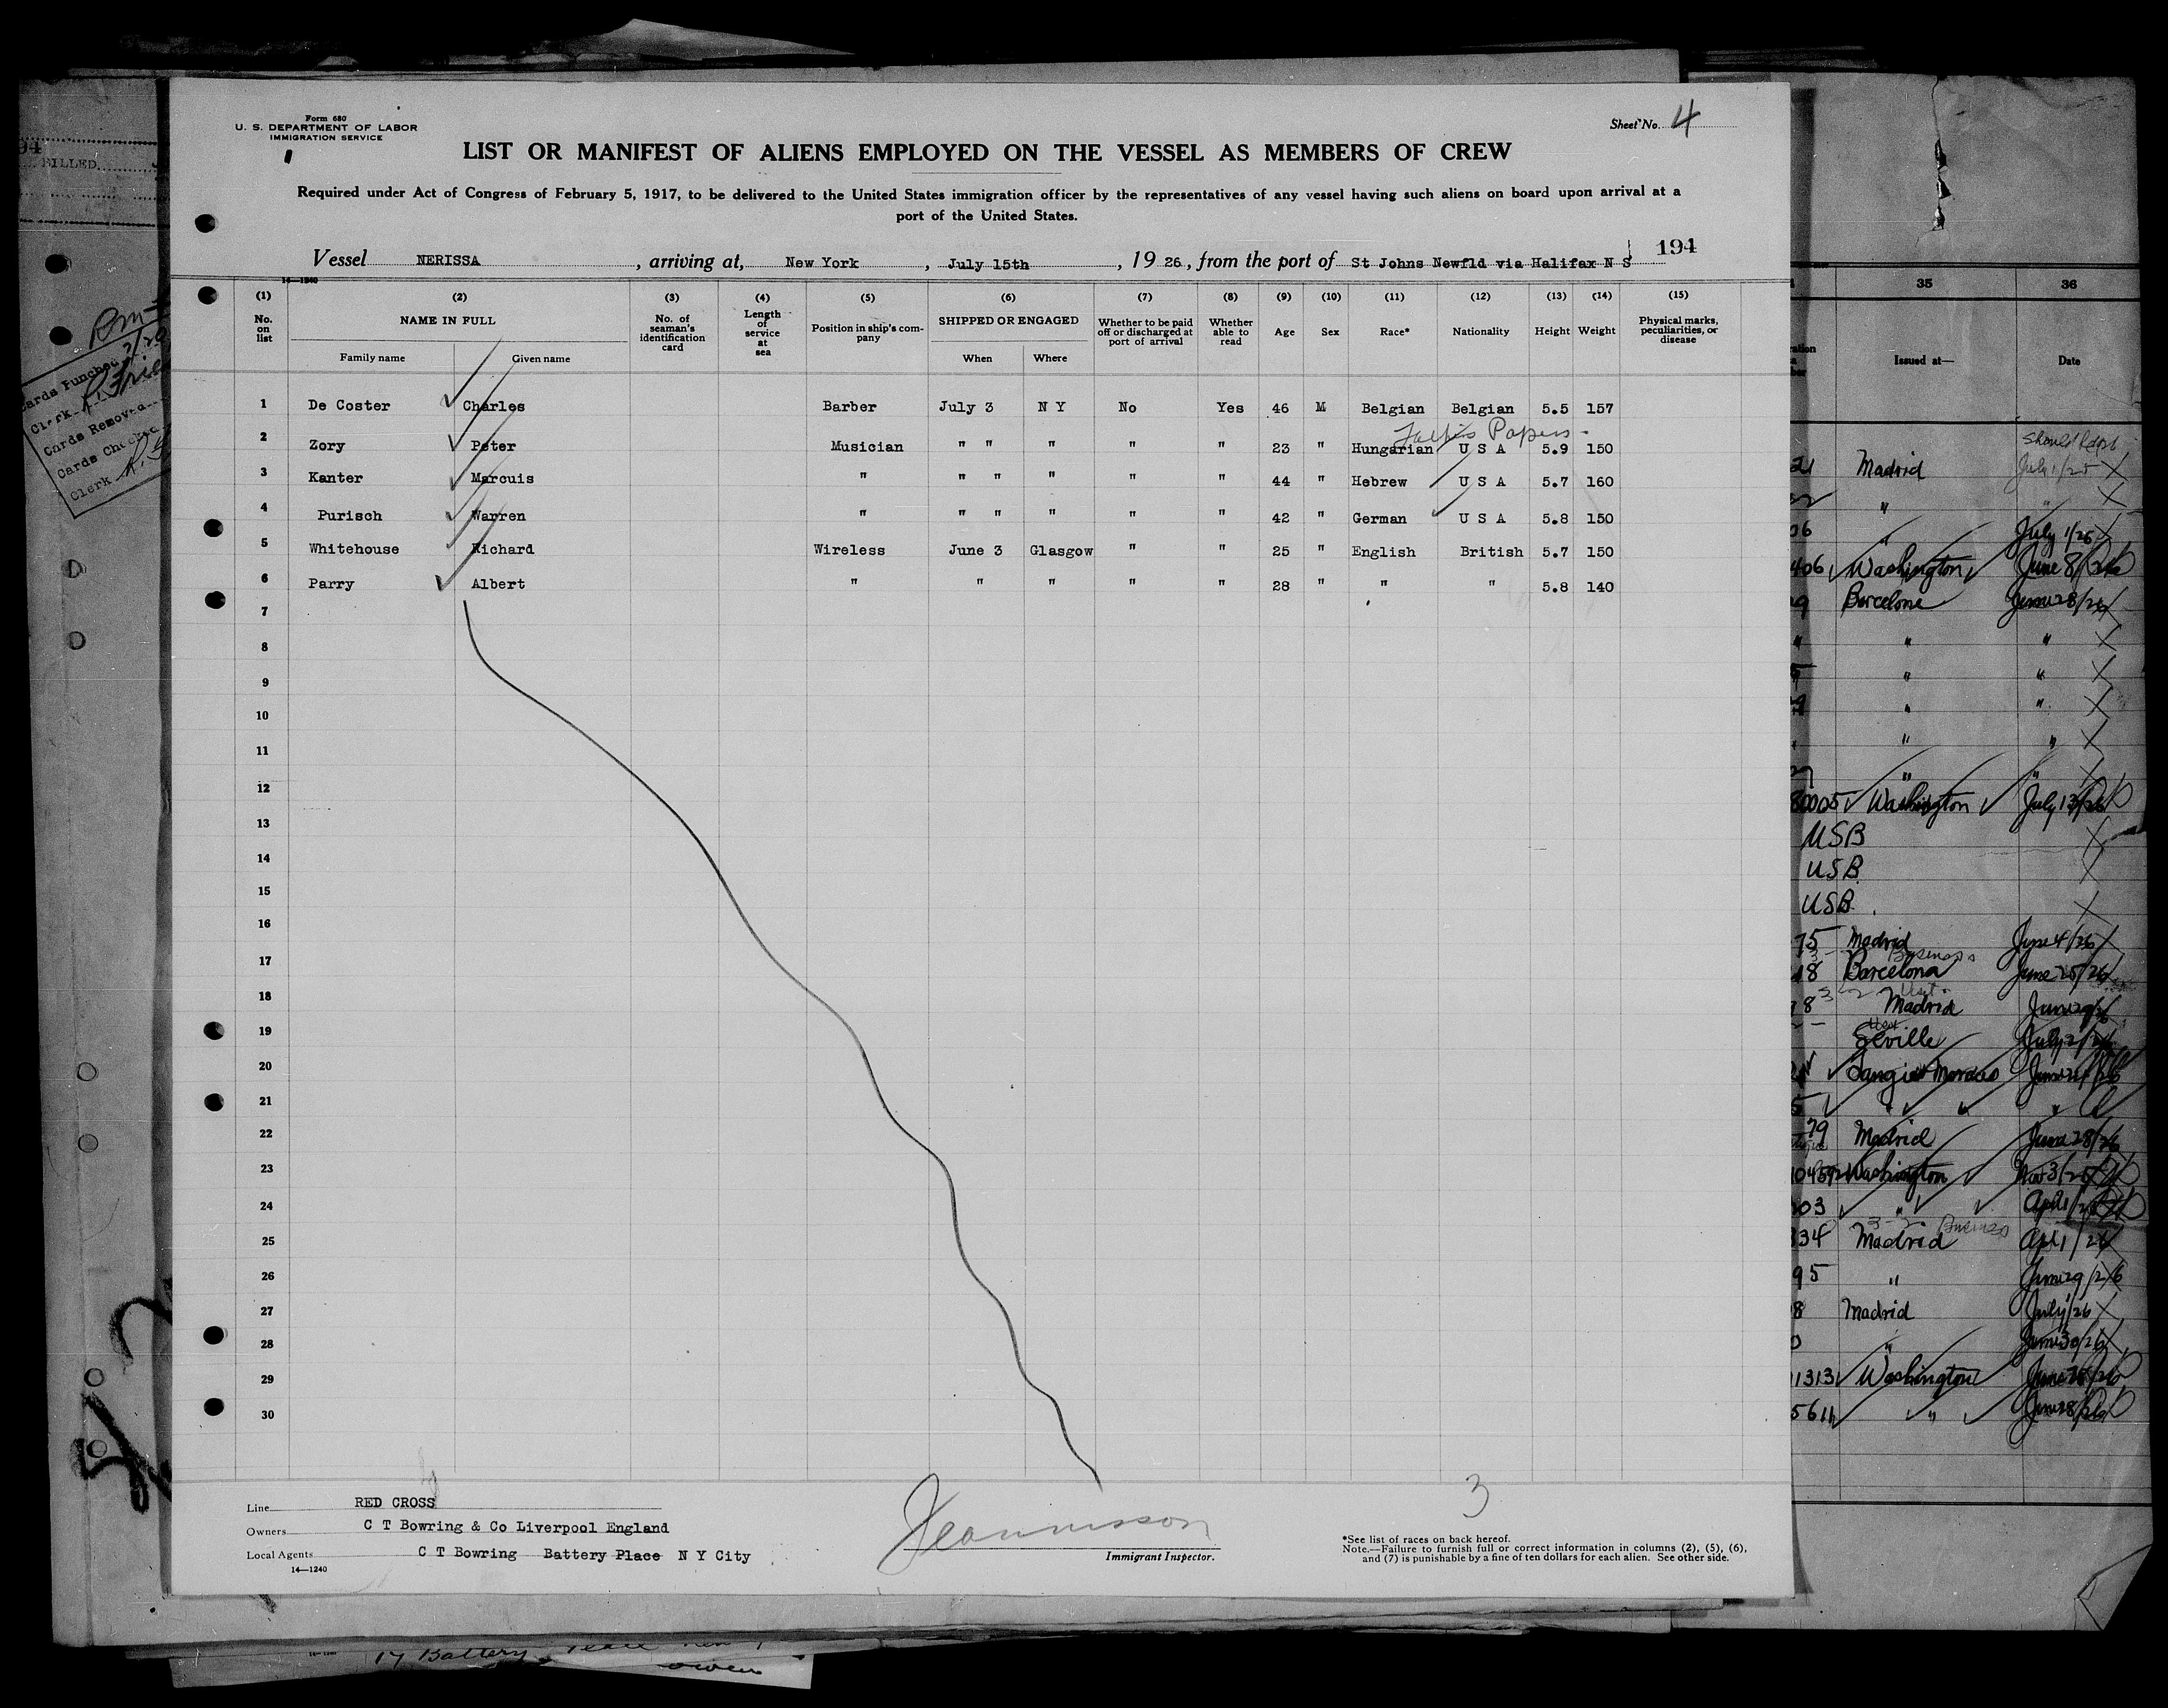 Form 680
U. S. DEPARTMENT OF LABOR
IMMIGRATION SERVICE
Sheet No. 4
LIST OR MANIFEST OF ALIENS EMPLOYED ON THE VESSEL AS MEMBERS OF CREW
Required under Act of Congress of February 5, 1917, to be delivered to the United States immigration officer by the representatives of any vessel having such aliens on board upon arrival at a
port of the United States.
194
Vessel NERISSA , arriving at, New York , July 15th , 19 26 , from the port of St Johns Newfld via Halifax N S
14—1240
(1) No. on list
(2) NAME IN FULL Family name Given name
(3) No. of seaman's identification card
(4) Length of service at sea
(5) Position in ship's company
(6) SHIPPED OR ENGAGED When Where
(7) Whether to be paid off or discharged at port of arrival
(8) Whether able to read
(9) Age
(10) Sex
(11) Race*
(12) Nationality
(13) Height
(14) Weight
(15) Physical marks, peculiarities, or disease
1 De Coster Charles Barber July 3 N Y No Yes 46 M Belgian Belgian 5.5 157
Papers
2 Zory Peter Musician " " " " " 23 " Hungarian U S A 5.9 150
3 Kanter Marcuis " " " " " " 44 " Hebrew U S A 5.7 160
4 Purisch Warren " " " " " " 42 " German U S A 5.8 150
5 Whitehouse Richard Wireless June 3 Glasgow " " 25 " English British 5.7 150
6 Parry Albert " " " " " 28 " " " 5.8 140
7
8
9
10
11
12
13
14
15
16
17
18
19
20
21
22
23
24
25
26
27
28
29
30
3
Line RED CROSS
Owners C T Bowring & Co Liverpool England
Local Agents C T Bowring Battery Place N Y City
14—1240
Immigrant Inspector.
*See list of races on back hereof.
Note.—Failure to furnish full or correct information in columns (2), (5), (6),
and (7) is punishable by a fine of ten dollars for each alien. See other side.
94
BILLED
Cards Punched
Clerk
Cards Removed
Cards Checked
Clerk
35 36
Issued at— Date
21 Madrid July 1/25
"
06 " July 1/26
406 Washington June 8/26
Barcelona June 28/26
" "
" "
" "
" "
" "
80005 Washington July 13/26
USB
USB
USB
75 Madrid June 4/26
Business
18 Barcelona June 25/26
8 Madrid June 29/26
Seville July 2/26
" " "
79 Madrid June 28/26
104592 Washington Nov 3/25
03 " April
Business
334 Madrid Apl 1/26
95 " June 29/26
8 Madrid July 1/26
0 " June 30/26
13131 Washington June 25/26
5611 " June 28/26
17 Battery Place New